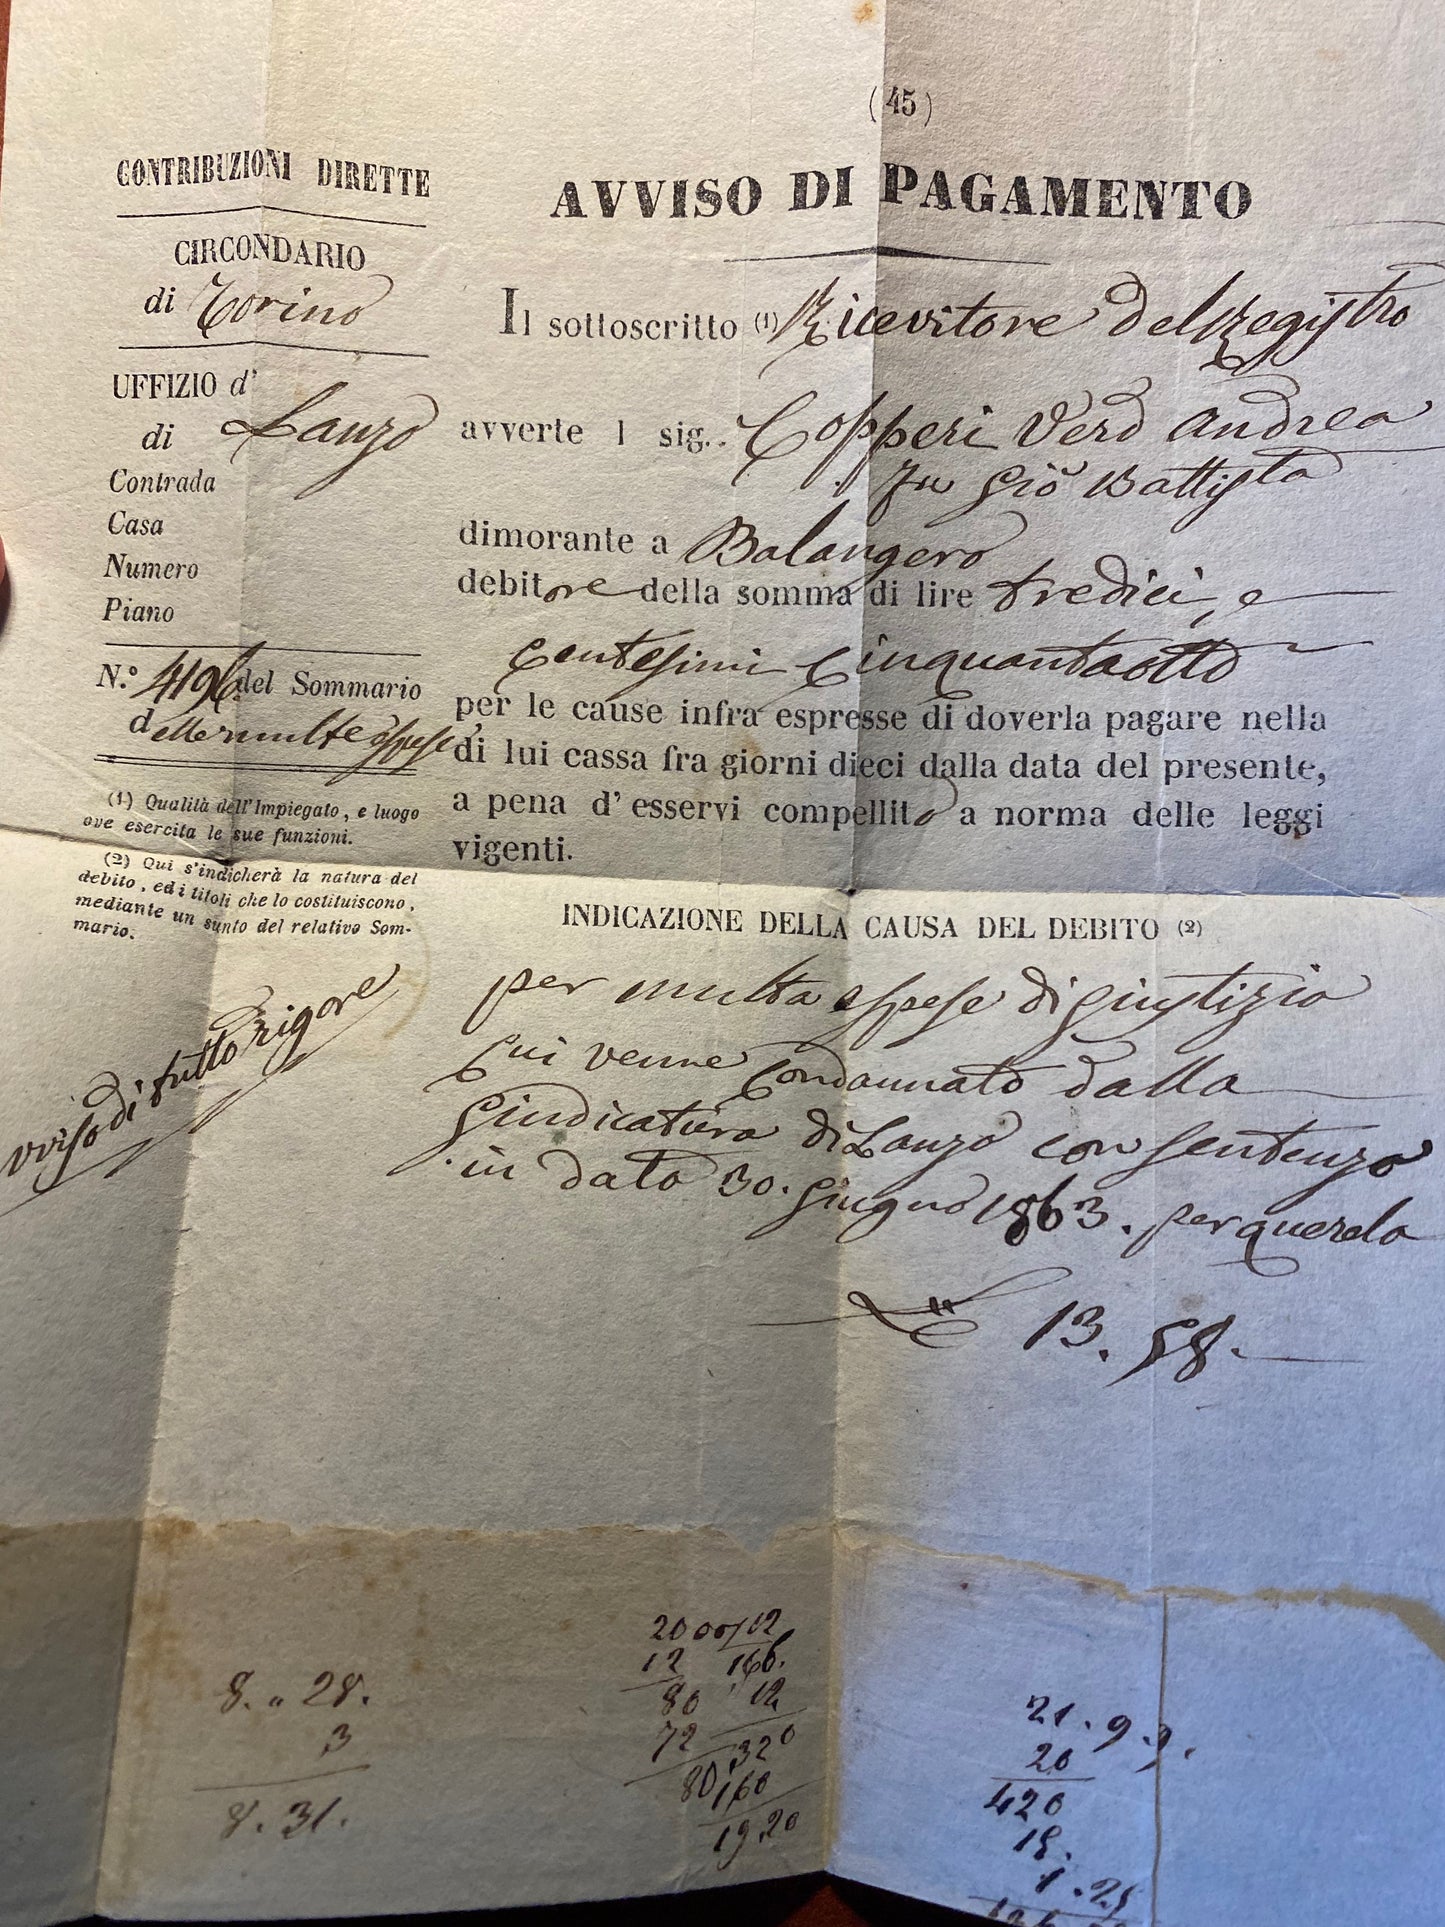 (45)
CONTRIBUZIONI DIRETTE
CIRCONDARIO
di Torino
UFFIZIO d'
di Lanzo
Contrada
Casa
Numero
Piano
N.º 4196 del Sommario
delle multe e spese
(1) Qualità dell'Impiegato, e luogo
ove esercita le sue funzioni.
(2) Qui s'indicherà la natura del
debito, ed i titoli che lo costituiscono,
mediante un sunto del relativo Som-
mario.
AVVISO DI PAGAMENTO
Il sottoscritto (1) Ricevitore del Registro
avverte l sig. Copperi Verd Andrea
fu Gio Battista
dimorante a Balangero
debitore della somma di lire tredici, e
Centesimi Cinquantaotto
per le cause infra espresse di doverla pagare nella
di lui cassa fra giorni dieci dalla data del presente,
a pena d'esservi compellito a norma delle leggi
vigenti.
INDICAZIONE DELLA CAUSA DEL DEBITO (2)
per multa e spese di giustizia
Cui venne Condannato dalla
Giudicatura di Lanzo con sentenza
in data 30. Giugno 1863. per querela
L 13. 58.
vviso di tutto rigore
8. " 28.
3
8. 31.
2000/12
12 166.
80 12
72 320
80 160
19.20
21. 9. 9.
20
420